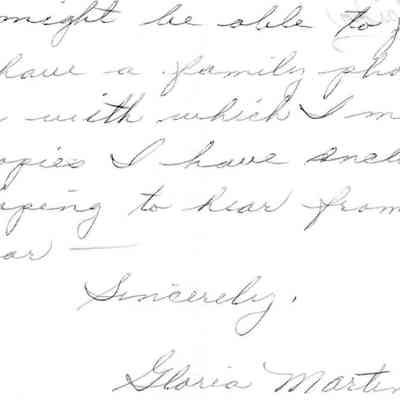 might be able to
have a family pho
with which I m
opies I have encl
oping to hear from
ar —
Sincerely,
Gloria Martin